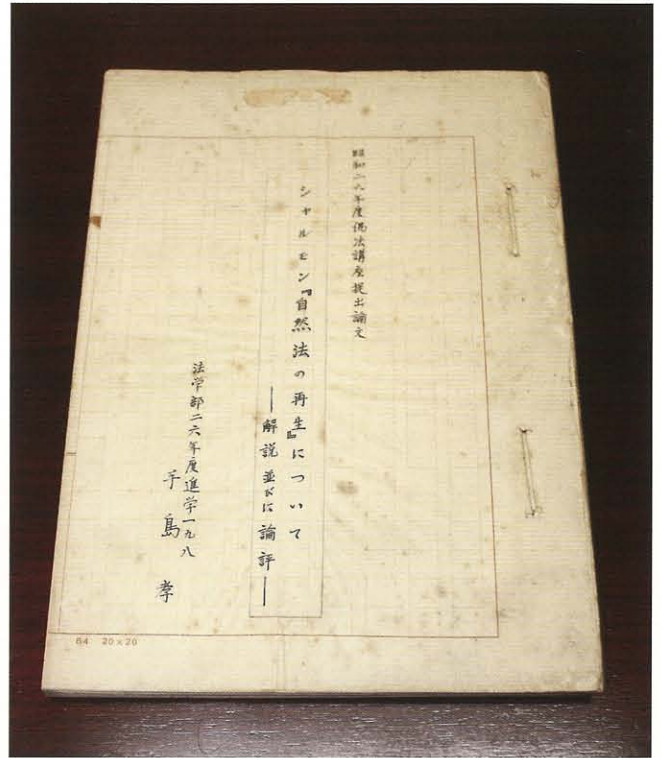 昭和二六年度佛法講座提出論文
シャルモン『自然法の再生』について
——解説並びに論評——
法学部二六年度進学一九八
手島孝
B4 20×20